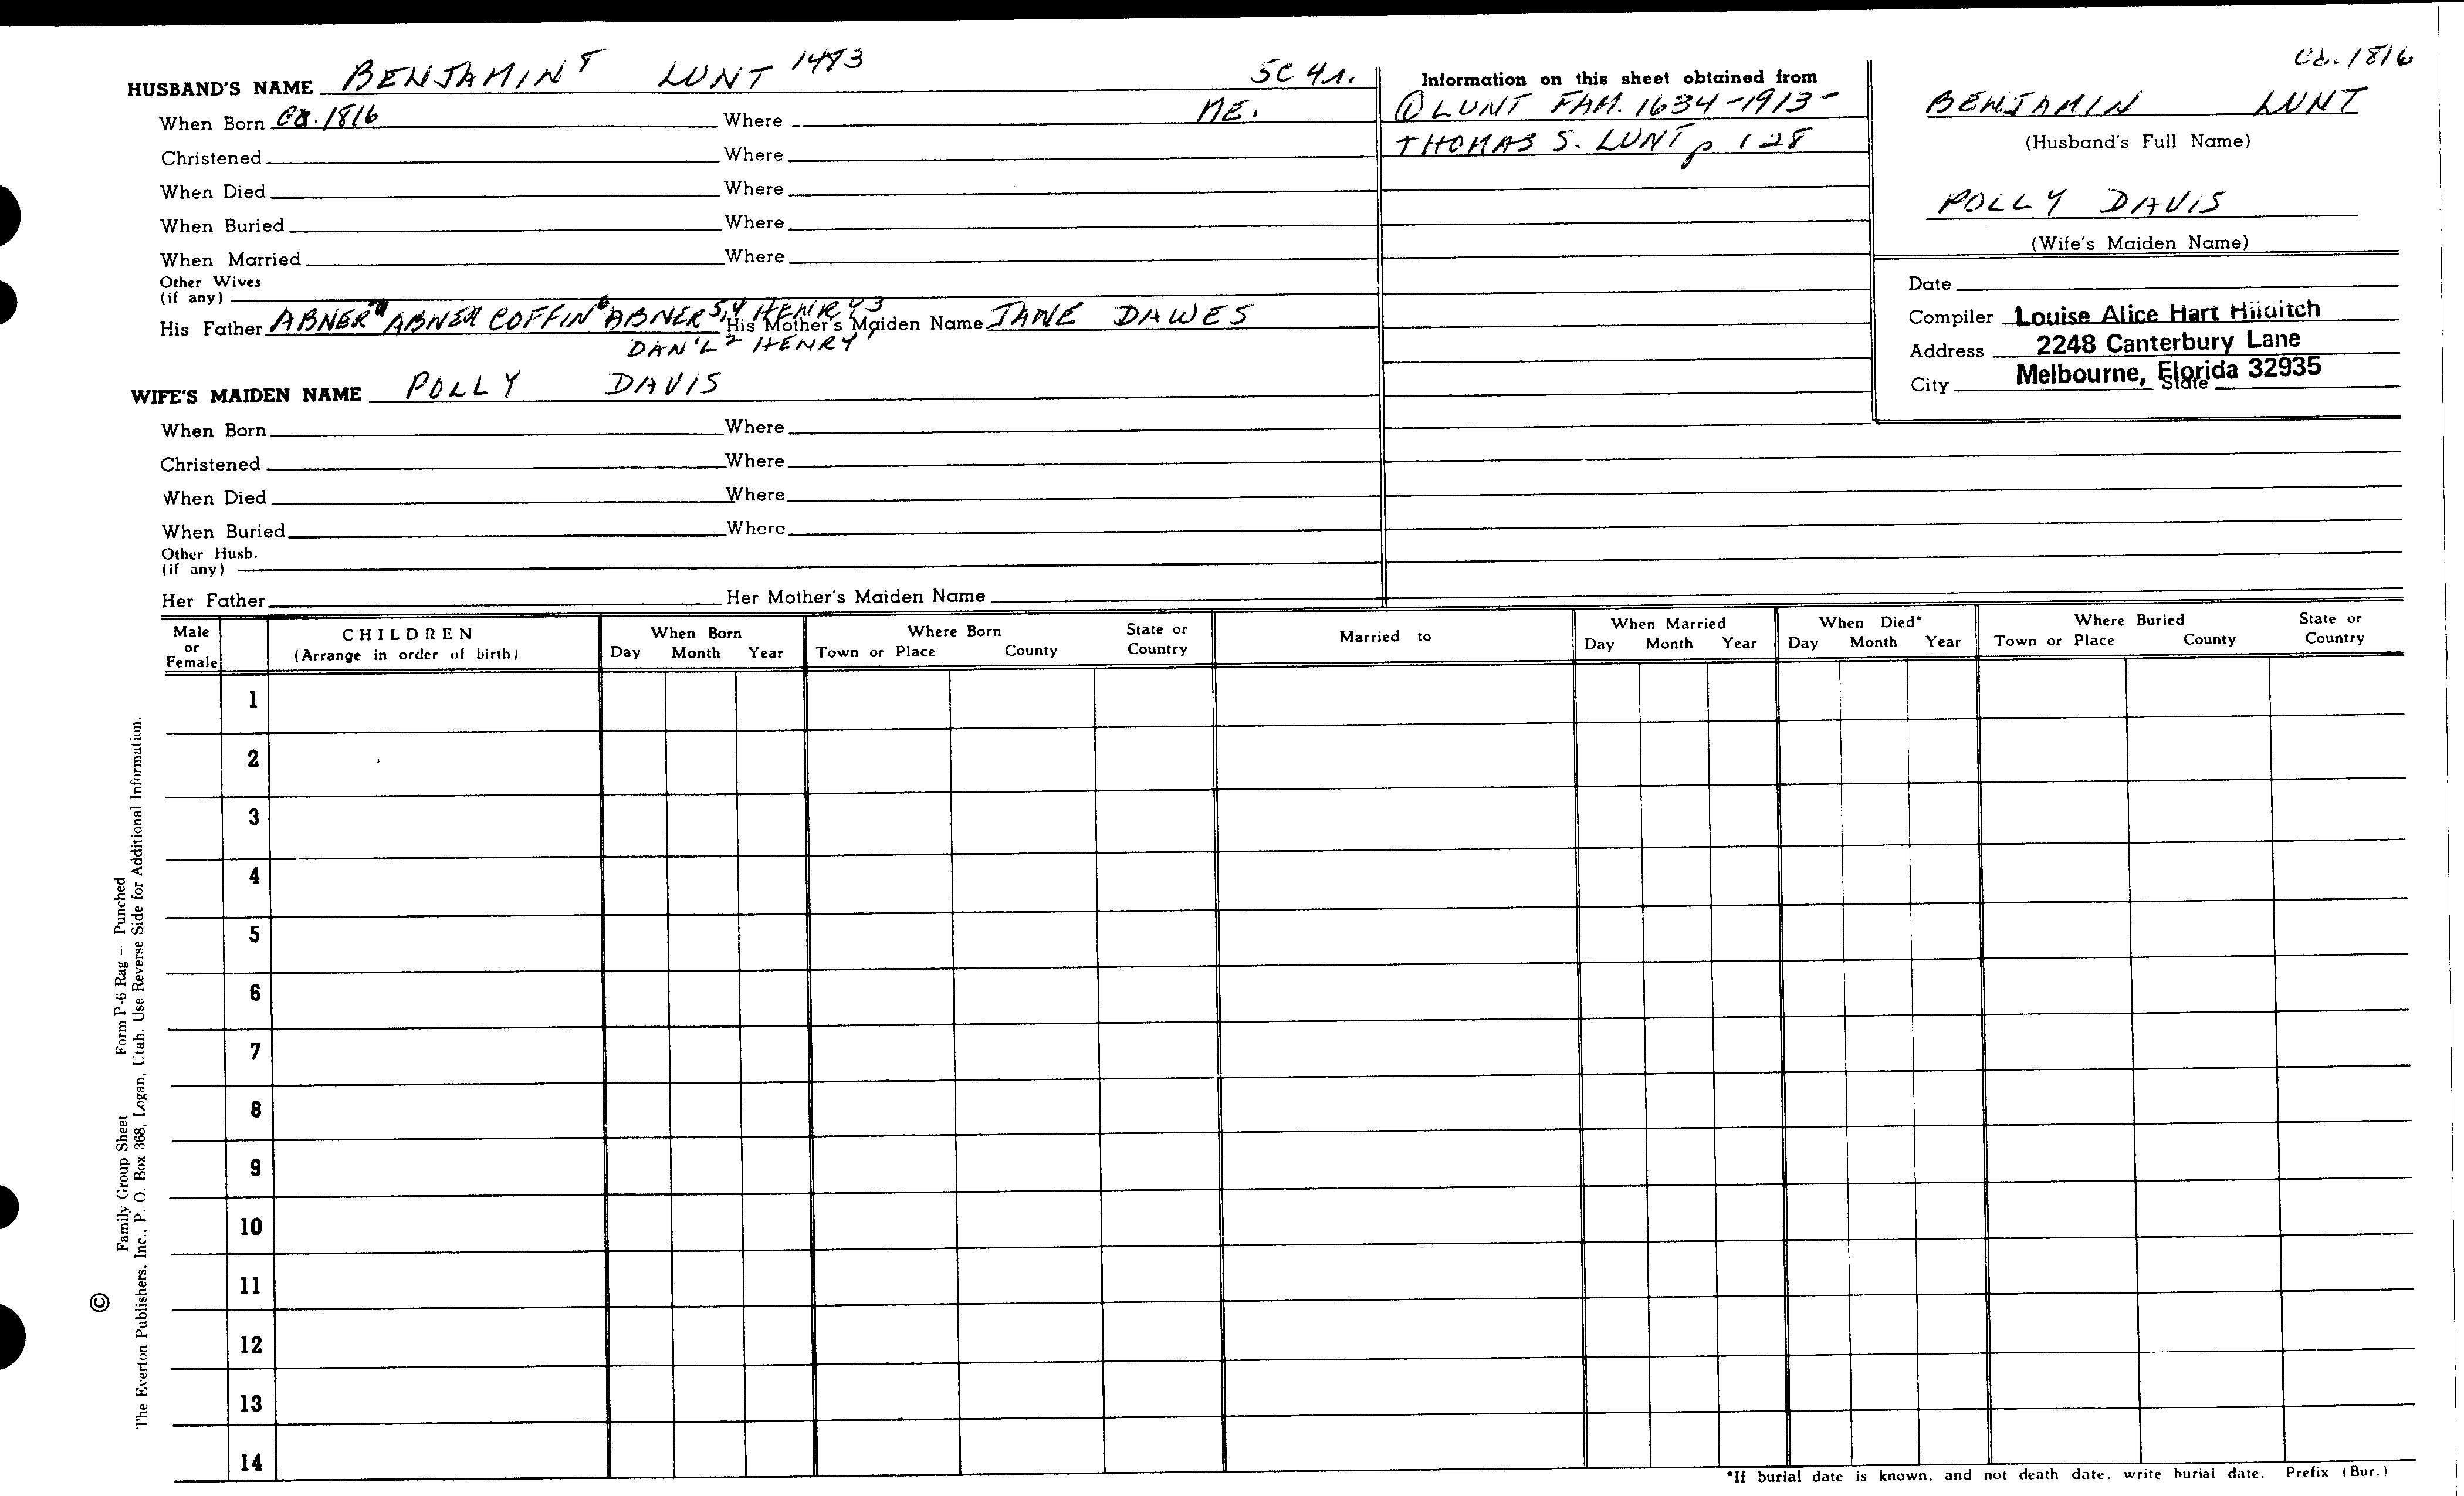 ca. 1816
HUSBAND'S NAME BENJAMIN 8 LUNT 1493 SC 41.
When Born ca. 1816 Where ME.
Christened Where
When Died Where
When Buried Where
When Married Where
Other Wives
(if any)
His Father ABNER ABNER COFFIN 6 ABNER 5,4 HENRY 3 His Mother's Maiden Name JANE DAWES
DAN'L 2 HENRY 1
WIFE'S MAIDEN NAME POLLY DAVIS
When Born Where
Christened Where
When Died Where
When Buried Where
Other Husb.
(if any)
Her Father Her Mother's Maiden Name
Information on this sheet obtained from
① LUNT FAM. 1634-1913-
THOMAS S. LUNT p 128
BENJAMIN LUNT
(Husband's Full Name)
POLLY DAVIS
(Wife's Maiden Name)
Date
Compiler Louise Alice Hart Hilditch
Address 2248 Canterbury Lane
City Melbourne, Florida 32935 State
Male or Female
CHILDREN
(Arrange in order of birth)
When Born
Day Month Year
Where Born
Town or Place County State or Country
Married to
When Married
Day Month Year
When Died*
Day Month Year
Where Buried
Town or Place County State or Country
1
2
3
4
5
6
7
8
9
10
11
12
13
14
*If burial date is known, and not death date, write burial date. Prefix (Bur.)
© Family Group Sheet Form P-6 Rag — Punched
The Everton Publishers, Inc., P. O. Box 368, Logan, Utah. Use Reverse Side for Additional Information.